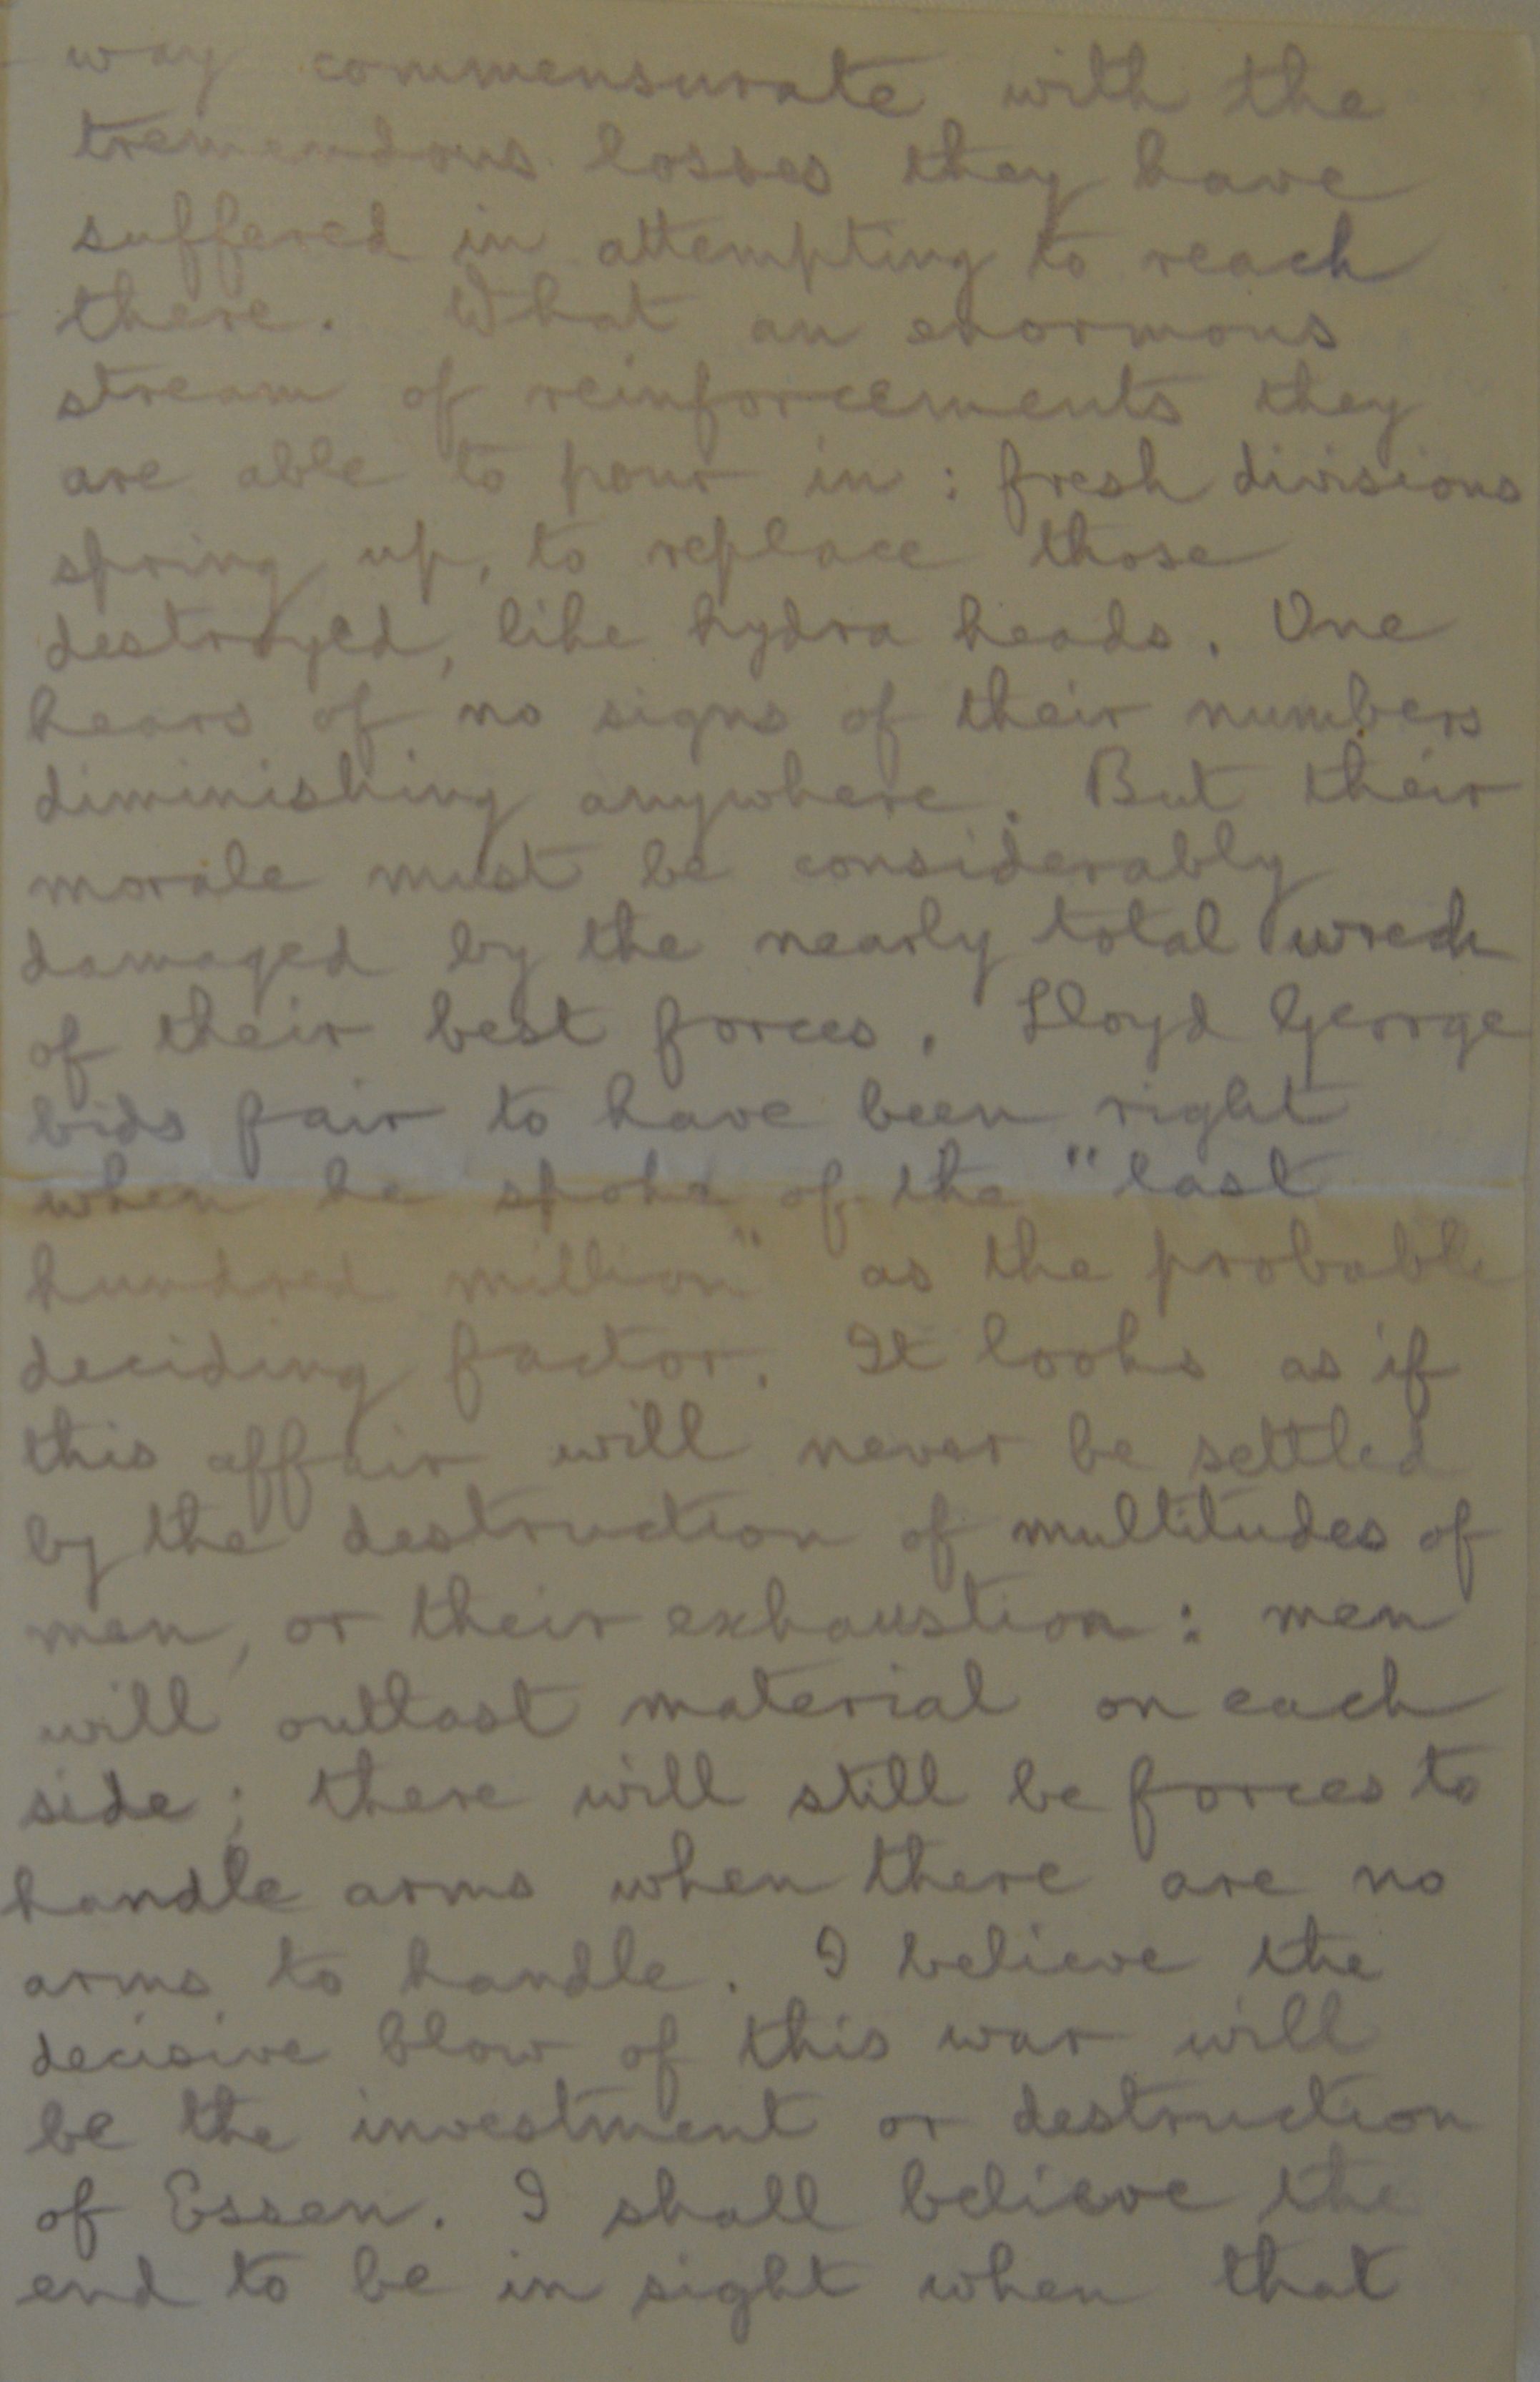 way commensurate with the
tremendous losses they have
suffered in attempting to reach
there. What an enormous
stream of reinforcements they
are able to pour in : fresh divisions
spring up, to replace those
destroyed, like hydra heads. One
hears of no signs of their numbers
diminishing anywhere. But their
morale must be considerably
damaged by the nearly total wreck
of their best forces. Lloyd George
bids fair to have been right
when he spoke of the "last
hundred million" as the probable
deciding factor. It looks as if
this affair will never be settled
by the destruction of multitudes of
men, or their exhaustion : men
will outlast material on each
side ; there will still be forces to
handle arms when there are no
arms to handle. I believe the
decisive blow of this war will
be the investment or destruction
of Essen. I shall believe the
end to be in sight when that